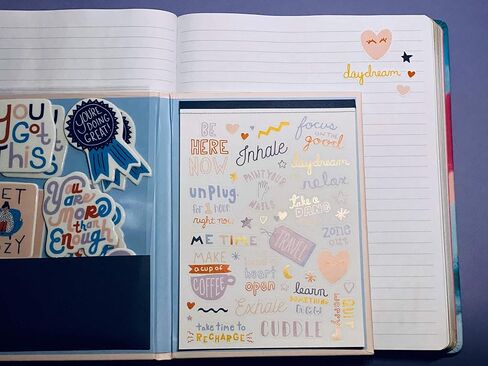 daydream
YOU
GOT
THIS
YOU'RE
DOING
GREAT!
GET
A
COZY
You
Are
More
than
Enough
BE
HERE
NOW
Inhale
focus
ON THE
good
daydream
PAINT YOUR
NAILS
relax
unplug
for 1 hour
right now
Take a
DANG
ME TIME
TRAVEL
zone
out
MAKE
a cup of
COFFEE
heart
open
learn
SOMETHING
NEW
Exhale
take time to
RECHARGE
CUDDLE